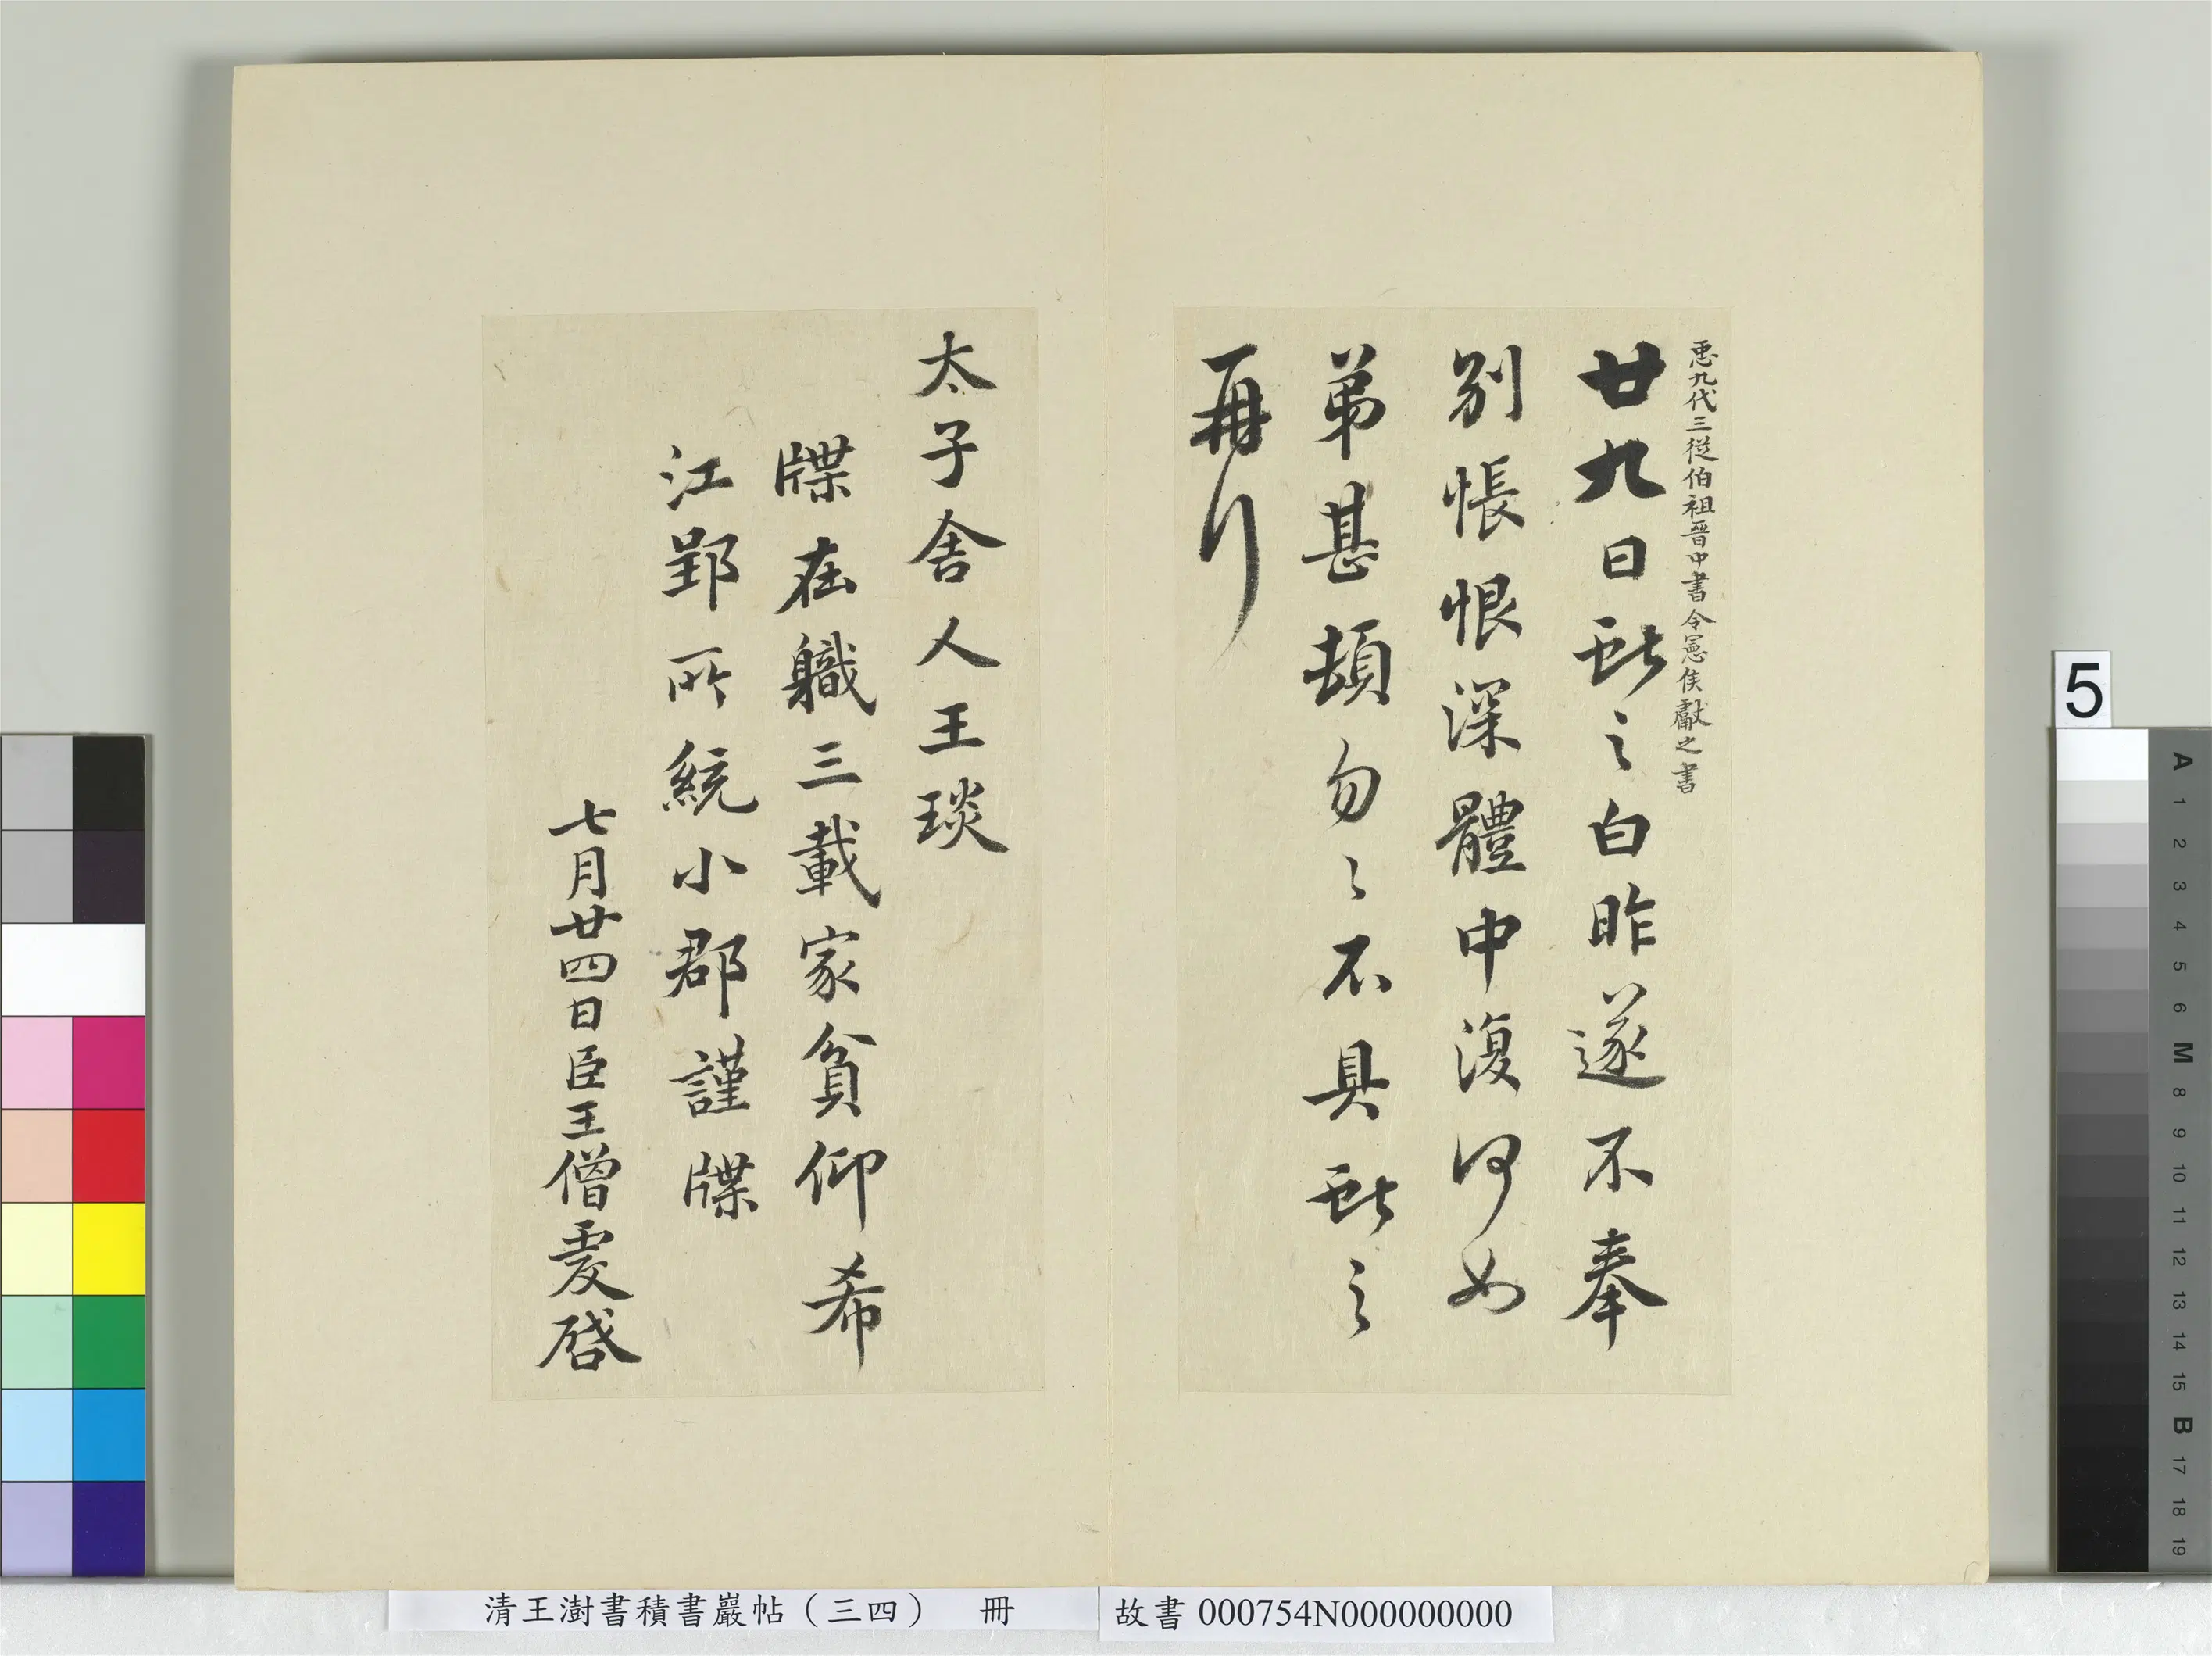 悪九代三從伯祖晉中書令憲侯獻之書
廿九日獻之白昨遂不奉
別悵恨深體中復何如
弟甚頓勿〻不具獻之
再拜
太子舍人王琰
牒在職三載家貧仰希
江郢所統小郡謹牒
七月廿四日臣王僧虔啓
清王澍書積書巖帖（三四） 冊
故書000754N000000000
5
A
1
2
3
4
5
6
M
8
9
10
11
12
13
14
15
B
17
18
19